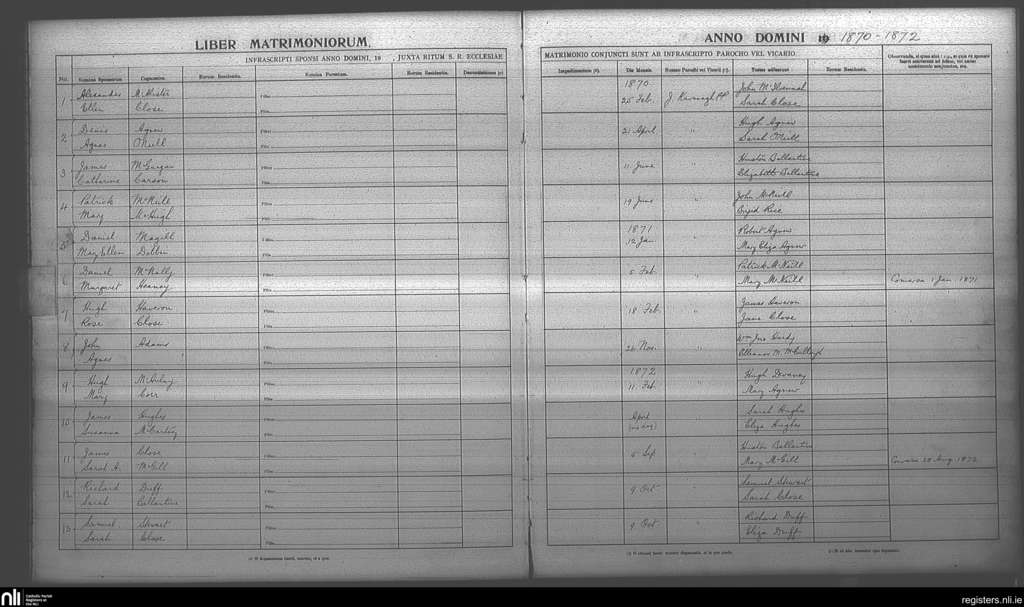 LIBER MATRIMONIORUM.
ANNO DOMINI 19 1870-1872
INFRASCRIPTI SPONSI ANNO DOMINI, 19 , JUXTA RITUM S. R. ECCLESIAE
MATRIMONIO CONJUNCTI SUNT AB INFRASCRIPTO PAROCHO VEL VICARIO.
No. Nomina Sponsorum Cognomina. Eorum Residentia. Nomina Parentum. Eorum Residentia. Denuntiationes
Impedimentum Die Mensis. Nomen Parochi vel Vicarii Testes adfuerunt Eorum Residentia.
1870
1 Alexander McAlister Filius 25 Feb. J. Kavanagh PP John McIlvennah
Ellen Close Filia Sarah Close
2 Denis Agnew Filius 21 April " Hugh Agnew
Agnes O'Neill Filia Sarah O'Neill
3 James McGurgan Filius 11 June " Huston Ballantine
Catherine Carson Filia Elizabeth Ballantine
4 Patrick McNeill Filius 19 June " John McNeill
Mary McHugh Filia Brigid Rice
1871
5 Daniel Magill Filius 12 Jan " Robert Agnew
Mary Ellen Dobbin Filia Mary Eliza Agnew
6 Daniel McNally Filius 5 Feb. " Patrick McNeill
Margaret Heaney Filia Mary McNeill Conversa 1 Jan 1871
7 Hugh Haveron Filius 18 Feb. " James Haveron
Rose Close Filia Jane Close
8 John Adams Filius 26 Nov. " Wm Jno Gurdy
Agnes Filia Elleanor M. McCullough
1872
9 Hugh McAulay Filius 11 Feb. " Hugh Devaney
Mary Corr Filia Mary Agnew
10 James Hughes Filius April (no day) " Sarah Hughes
Susanna McCartney Filia Eliza Hughes
11 James Close Filius 5 Sep " Huston Ballantine
Sarah A. McGill Filia Mary McGill Conversa 25 Aug. 1872
12 Richard Duff Filius 9 Oct " Samuel Stewart
Sarah Ballantine Filia Sarah Close
13 Samuel Stewart Filius 9 Oct " Richard Duff
Sarah Close Filia Eliza Duff
nli
Catholic Parish
Registers at
the NLI
registers.nli.ie